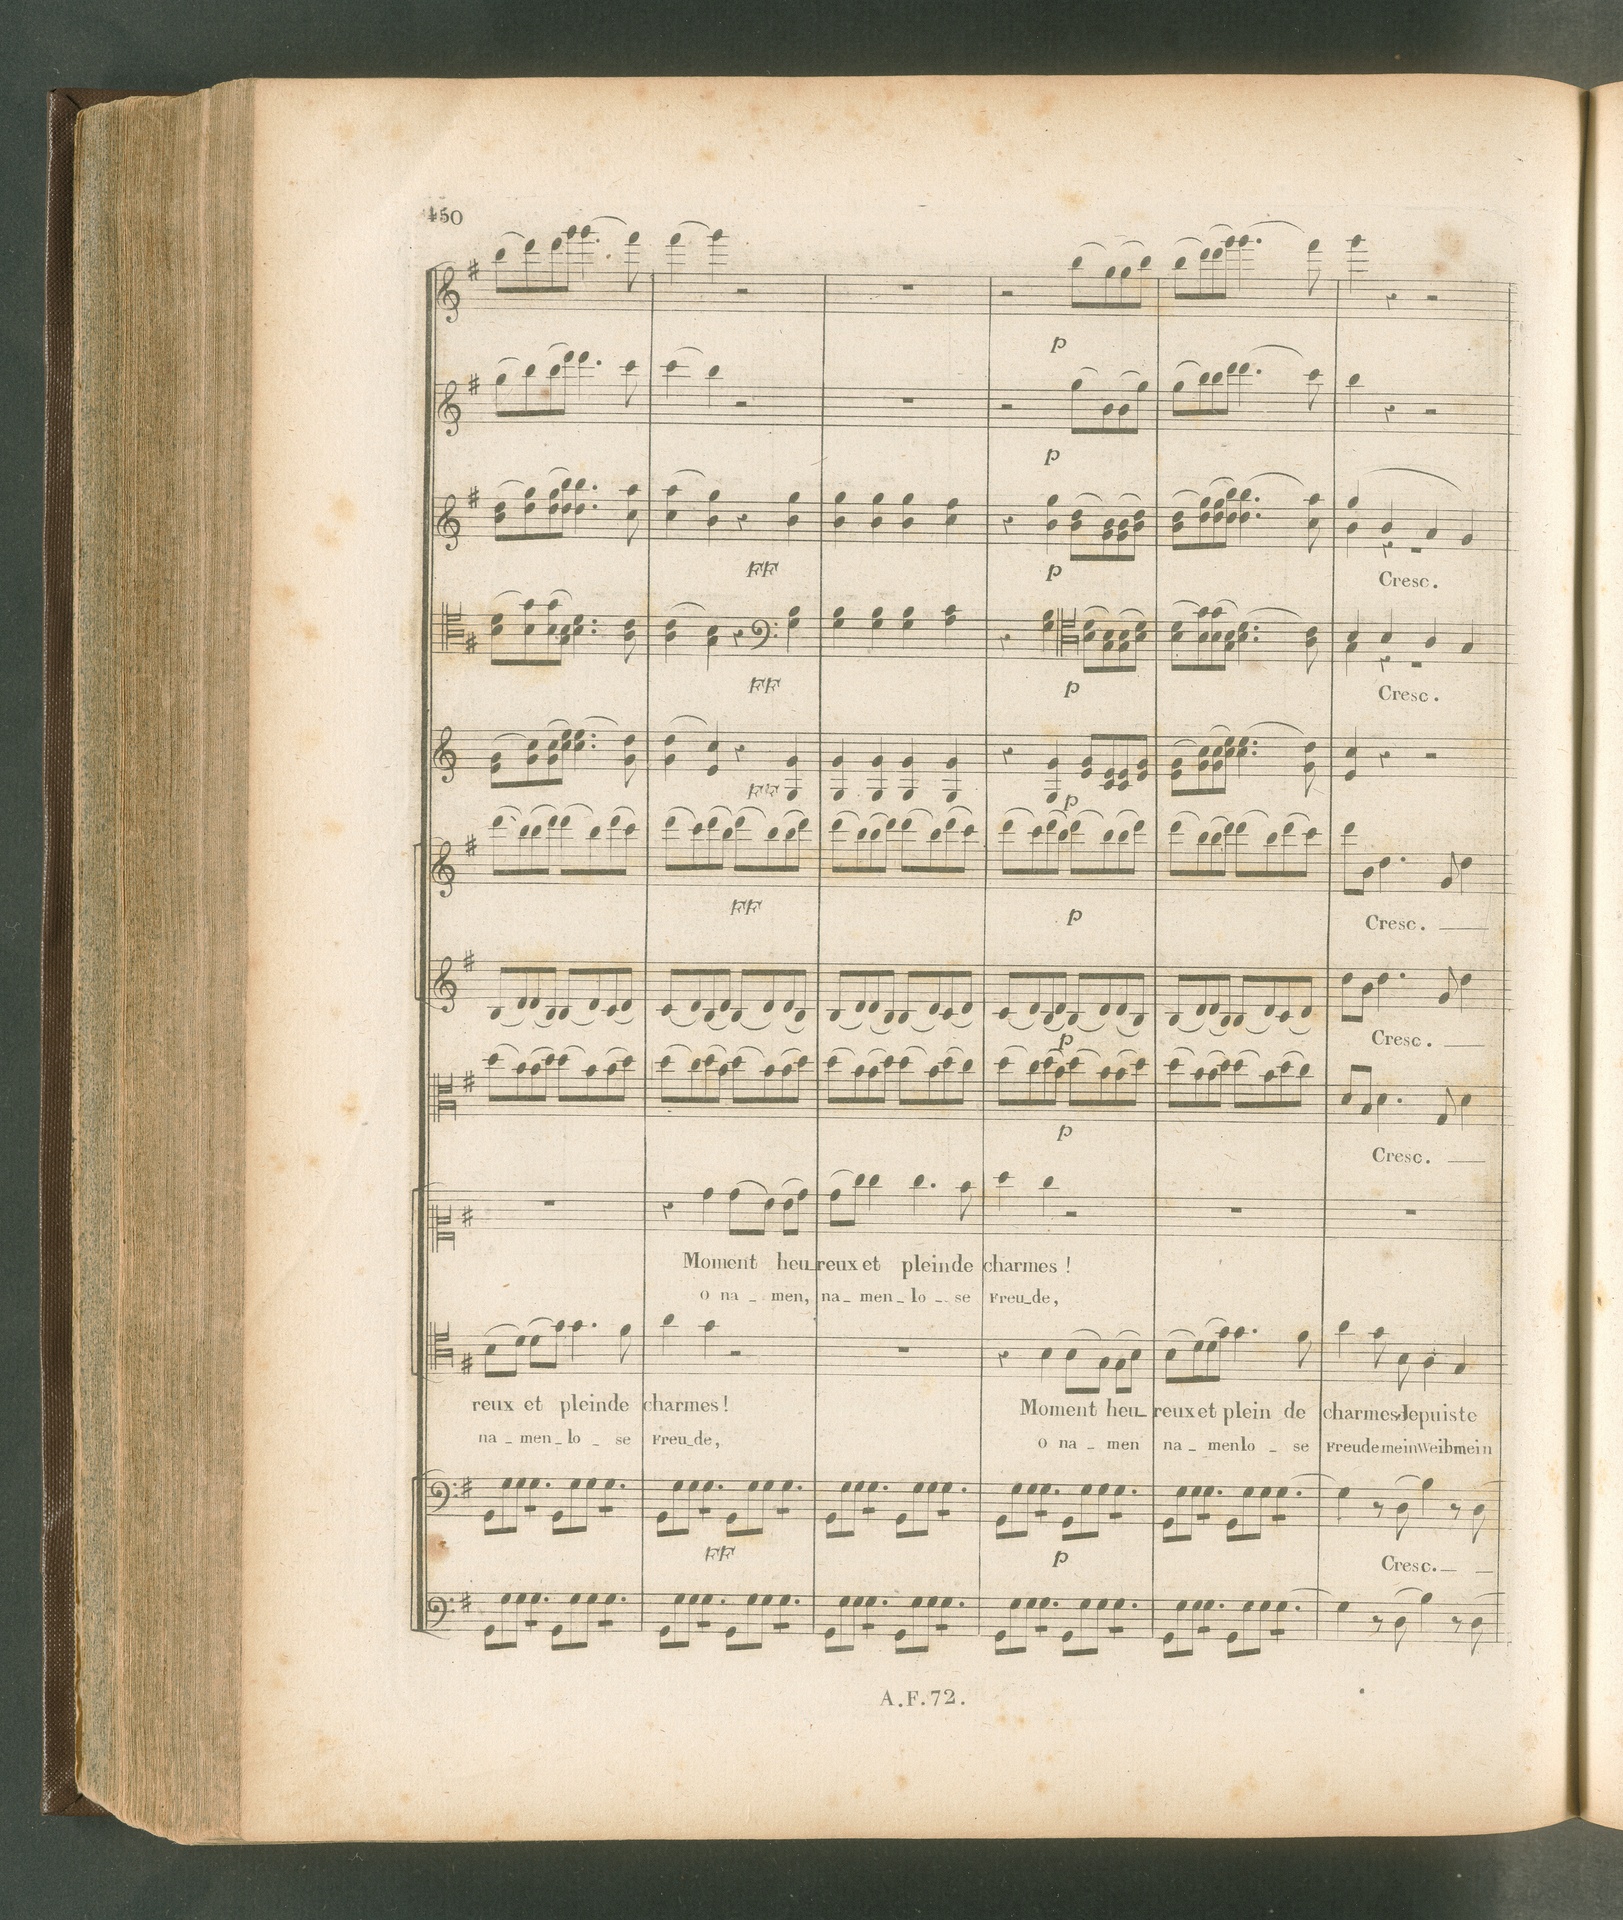 450
p
p
FF p Cresc.
FF p Cresc.
FF p
FF p Cresc.
p Cresc.
p Cresc.
Moment heu_reux et plein de charmes !
O na _ men, na _ men _ lo _ se Freu_de,
reux et plein de charmes ! Moment heu_ reux et plein de charmes depuis te
na _ men _ lo _ se Freu_de, O na _ men na _ menlo _ se Freude mein Weib mein
FF p Cresc. _ _
A.F.72.